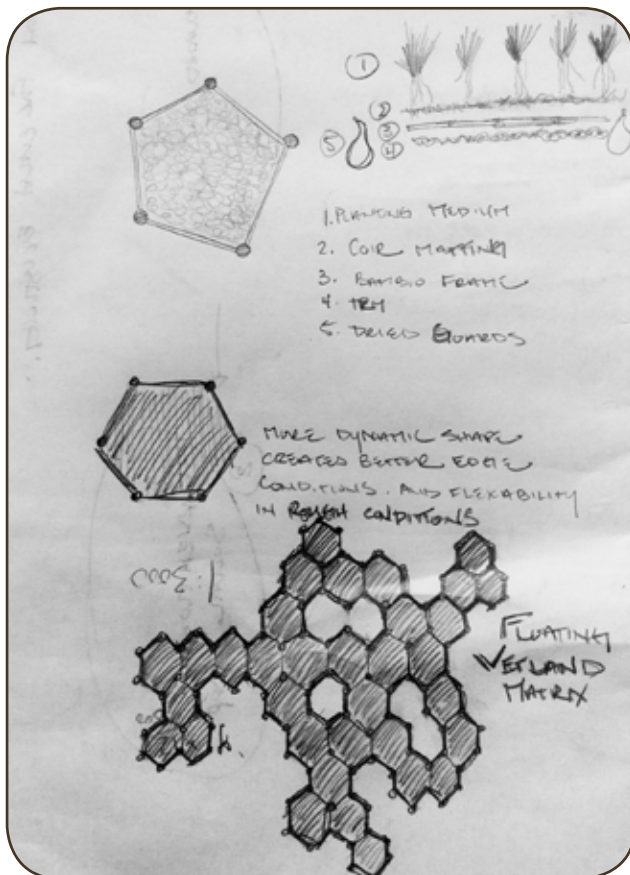 1
2
3
4
5
1. PLANTING MEDIUM
2. COIR MATTING
3. BAMBOO FRAME
4. TRM
5. DRIED GUARDS
MORE DYNAMIC SHAPE
CREATED BETTER EDGE
CONDITIONS. AND FLEXABILITY
IN ROUGH CONDITIONS
1:3000
FLOATING
WETLAND
MATRIX